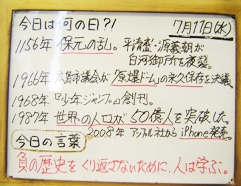 今日は何の日?!
7月11日(水)
1156年 保元の乱。平清盛・源義朝が
白河御所を夜襲。
1966年 広島市議会が「原爆ドーム」の永久保存を決議。
1968年『少年ジャンプ』創刊。
1987年 世界の人口が50億人を突破した。
今日の言葉
2008年 アップル社から iPhone発売。
負の歴史をくり返さないために、人は学ぶ。